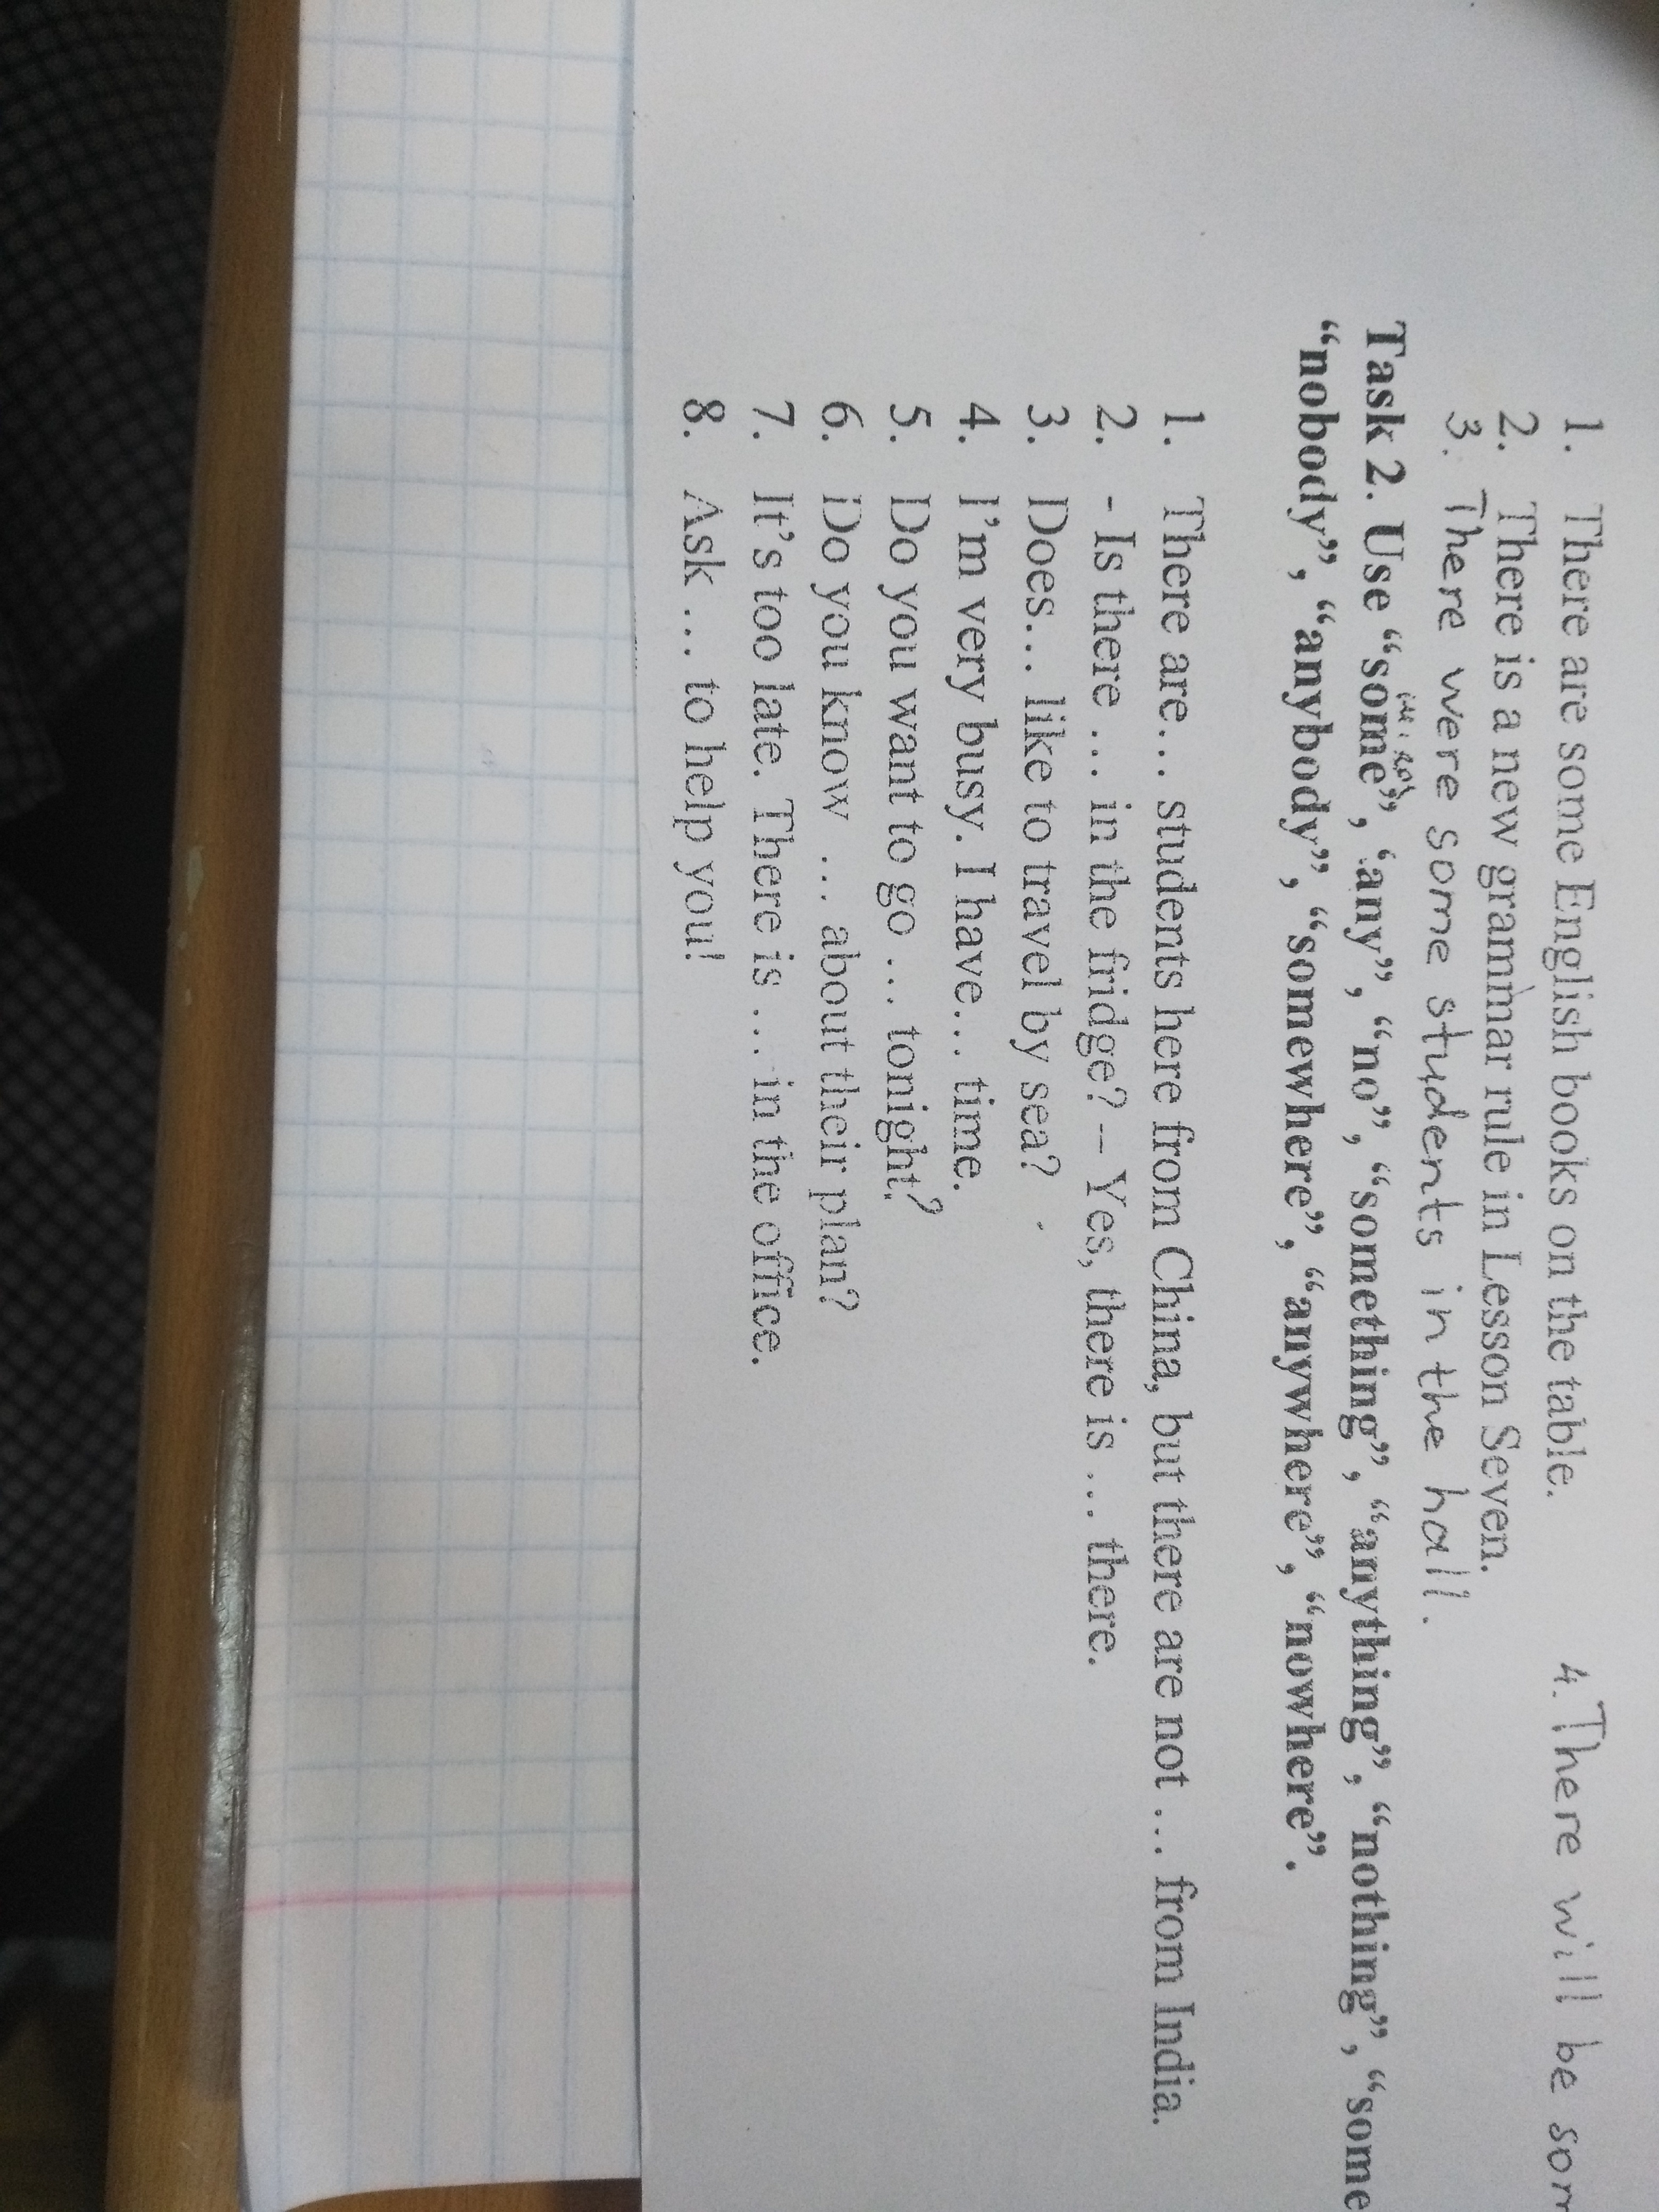 1. There are some English books on the table. 4. There will be som
2. There is a new grammar rule in Lesson Seven.
3. There were some students in the hall.
Task 2. Use “some”, “any”, “no”, “something”, “anything”, “nothing”, “some
“nobody”, “anybody”, “somewhere”, “anywhere”, “nowhere”.
1. There are… students here from China, but there are not … from India.
2. - Is there … in the fridge? – Yes, there is … there.
3. Does… like to travel by sea?
4. I’m very busy. I have… time.
5. Do you want to go … tonight?
6. Do you know … about their plan?
7. It’s too late. There is … in the office.
8. Ask … to help you!